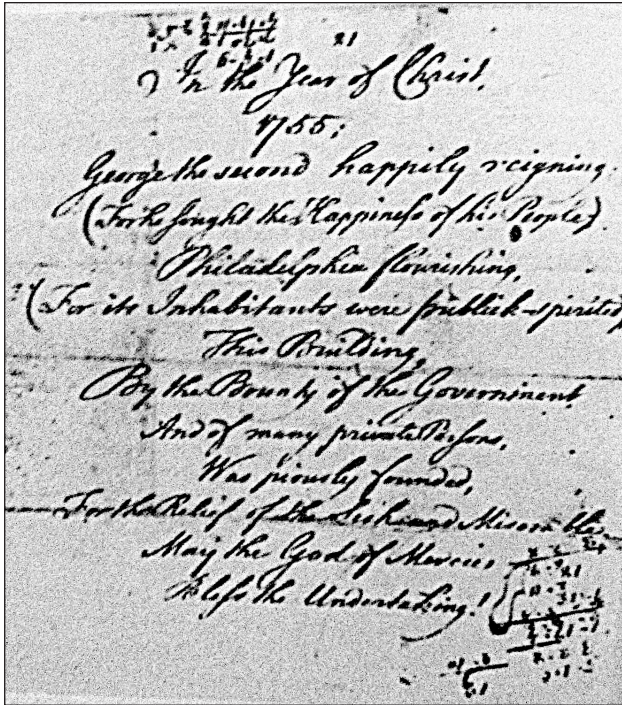 21
In the Year of Christ,
1755:
George the second happily reigning
(For he sought the Happiness of his People)
Philadelphia flourishing,
(For its Inhabitants were publick-spirited
This Building,
By the Bounty of the Government
And of many private Persons,
Was piously founded,
For the Relief of the Sick and Miserable
May the God of Mercies
Bless the Undertaking!